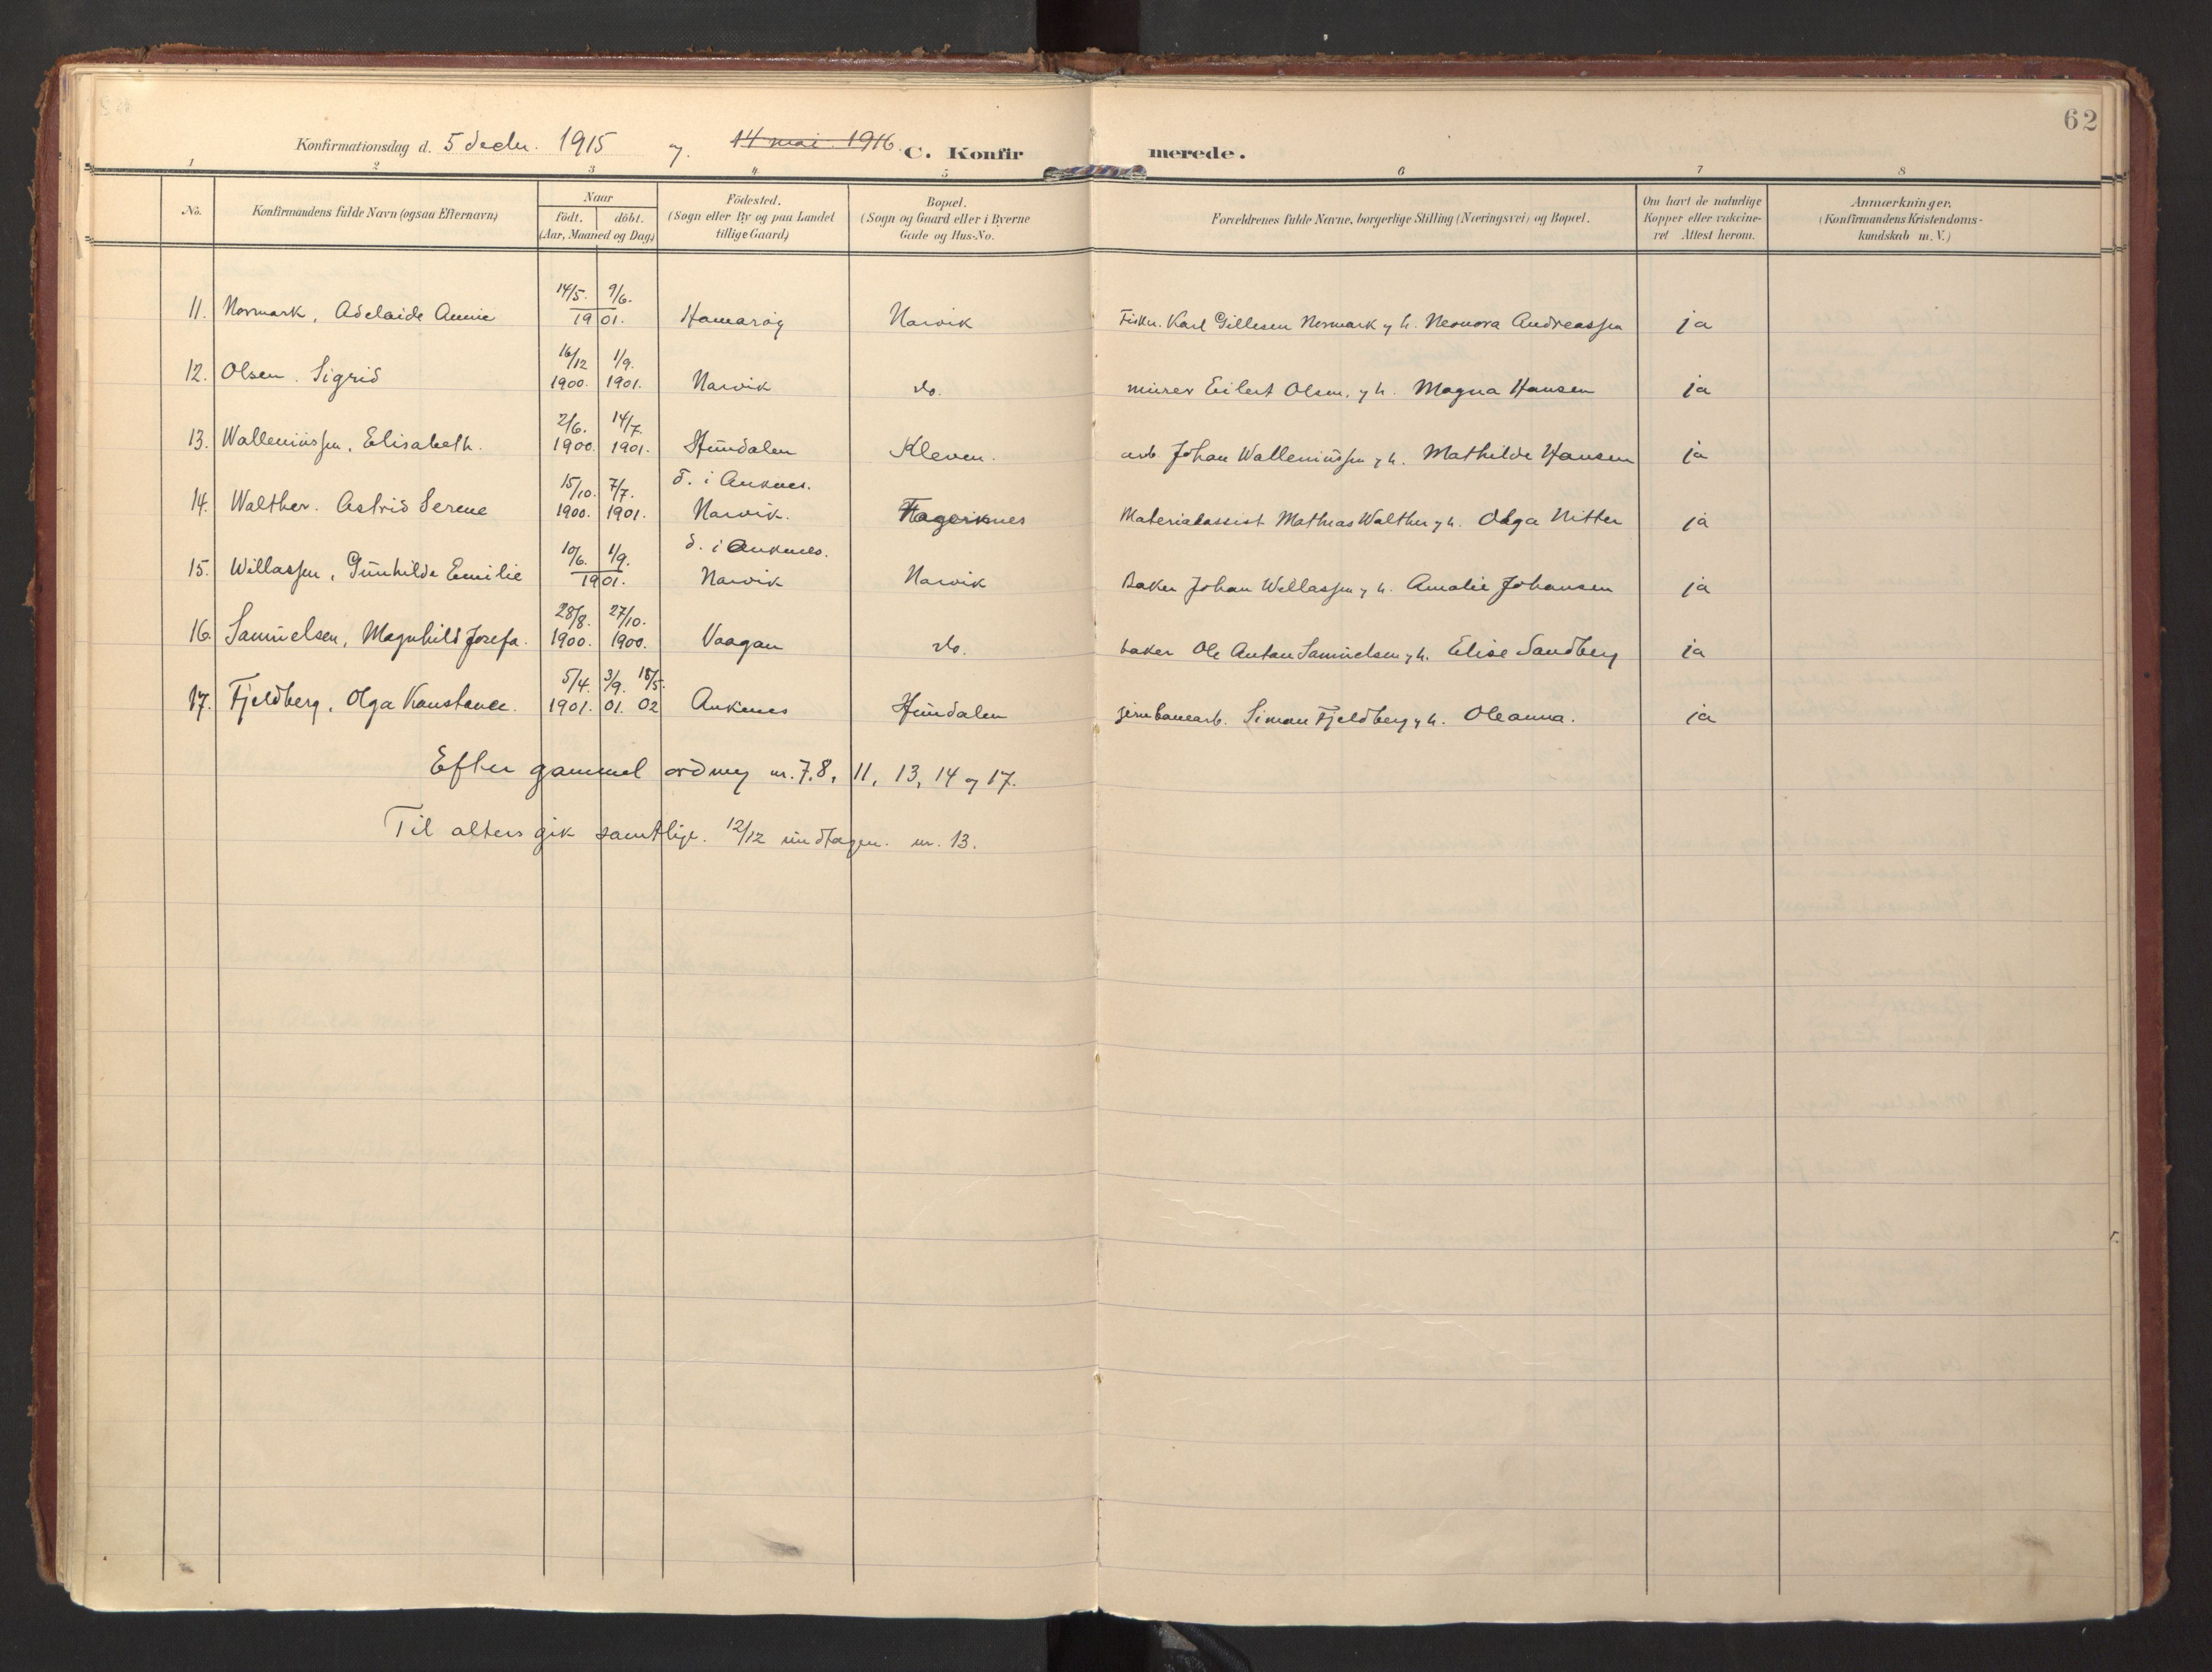 62
Konfirmationsdag d. 5 decbr. 1915 og 14 mai 1916. C. Konfirmerede.
1 2 3 4 5 6 7 8
No.
Konfirmandens fulde Navn (ogsaa Efternavn)
Naar
födt. döbt.
(Aar, Maaned og Dag)
Födested.
(Sogn eller By og paa Landet
tillige Gaard)
Bopæl.
(Sogn og Gaard eller i Byerne
Gade og Hus-No.
Forældrenes fulde Navne, borgerlige Stilling (Næringsvei) og Bopæl.
Om havt de naturlige
Kopper eller vakcine-
ret Attest herom.
Anmærkninger.
(Konfirmandens Kristendoms-
kundskab m. V.)
14/5. 9/6.
11. Normark, Adelaide Annie 1901. Hamarøy Narvik Fisker. Karl Gillesen Normark og h. Neonora Andreassen ja
16/12 1/9.
12. Olsen. Sigrid 1900. 1901. Narvik do. murer Eilert Olsen, og h. Magna Hansen ja
2/6. 14/7.
13. Walleniussen, Elisabeth. 1900. 1901. Hundalen Kleven. arb. Johan Walleniussen og h. Mathilde Hansen ja
15/10. 7/7. d. i Ankenes.
14. Walther. Astrid Serene 1900. 1901. Narvik. Fagernes Materialassist Mathias Walther og h. Olga Nitter ja
10/6. 1/9. d. i Ankenes.
15. Willassen, Gunhilde Emilie 1901. Narvik Narvik Baker Johan Willassen og h. Amalie Johansen ja
28/8. 27/10.
16. Samuelsen, Magnhild Josefa. 1900. 1900. Vaagan do. baker Ole Antan Samuelsen og h. Elise Sandberg ja
5/4. 3/9. 18/5.
17. Fjeldberg, Olga Konstance. 1901. 01. 02 Ankenes Hundalen jernbanearb. Simon Fjeldberg og h. Oleanna. ja
Efter gammel ordning nr. 7, 8, 11, 13, 14 og 17.
Til alters gik samtlige. 12/12 undtagen. nr. 13.